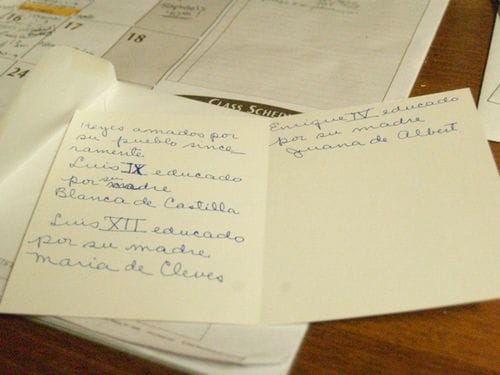 16
17
18
24
CLASS SCHED
Reyes amados por
su pueblo since
ramente.
Luis IX educado
por su madre
Blanca de Castilla
Luis XII educado
por su madre
Maria de Cleves
Enrique IV educado
por su madre
Juana de Albert